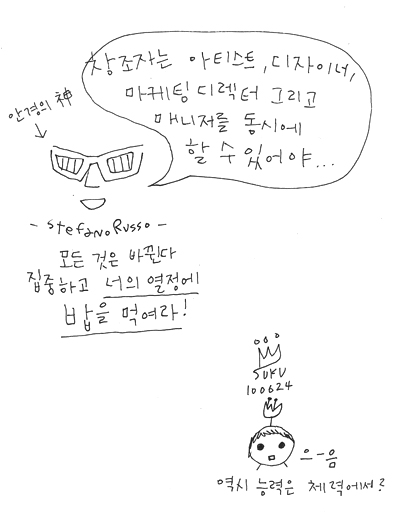 창조자는 아티스트, 디자이너,
마케팅 디렉터 그리고
매니저를 동시에
할 수 있어야...
안경의 神
- Stefano Russo -
모든 것은 바뀐다
집중하고 너의 열정에
밥을 먹여라!
SUKU
100624
으-음
역시 능력은 체력에서?